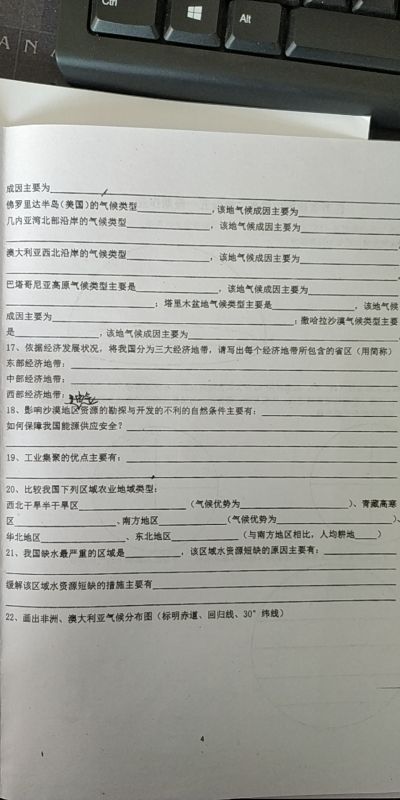 Ctrl
Alt
A N A
成因主要为
佛罗里达半岛(美国)的气候类型____________,该地气候成因主要为____________
几内亚湾北部沿岸的气候类型____________,该地气候成因主要为____________
澳大利亚西北沿岸的气候类型____________,该地气候成因主要为____________
巴塔哥尼亚高原气候类型主要是____________,该地气候成因主要为____________
____________;塔里木盆地气候类型主要是____________,该地气候
成因主要为____________;撒哈拉沙漠气候类型主要
是____________,该地气候成因主要为____________
17、依据经济发展状况,将我国分为三大经济地带,请写出每个经济地带所包含的省区(用简称)
东部经济地带:____________
中部经济地带:____________
西部经济地带:____________
18、影响沙漠地区资源的勘探与开发的不利的自然条件主要有:____________
如何保障我国能源供应安全?____________
19、工业集聚的优点主要有:____________
20、比较我国下列区域农业地域类型:
西北干旱半干旱区____________(气候优势为____________)、青藏高寒
区____________、南方地区____________(气候优势为____________)、
华北地区____________、东北地区____________(与南方地区相比,人均耕地____)
21、我国缺水最严重的区域是____________,该区域水资源短缺的原因主要有:____________
缓解该区域水资源短缺的措施主要有____________
22、画出非洲、澳大利亚气候分布图(标明赤道、回归线、30°纬线)
4